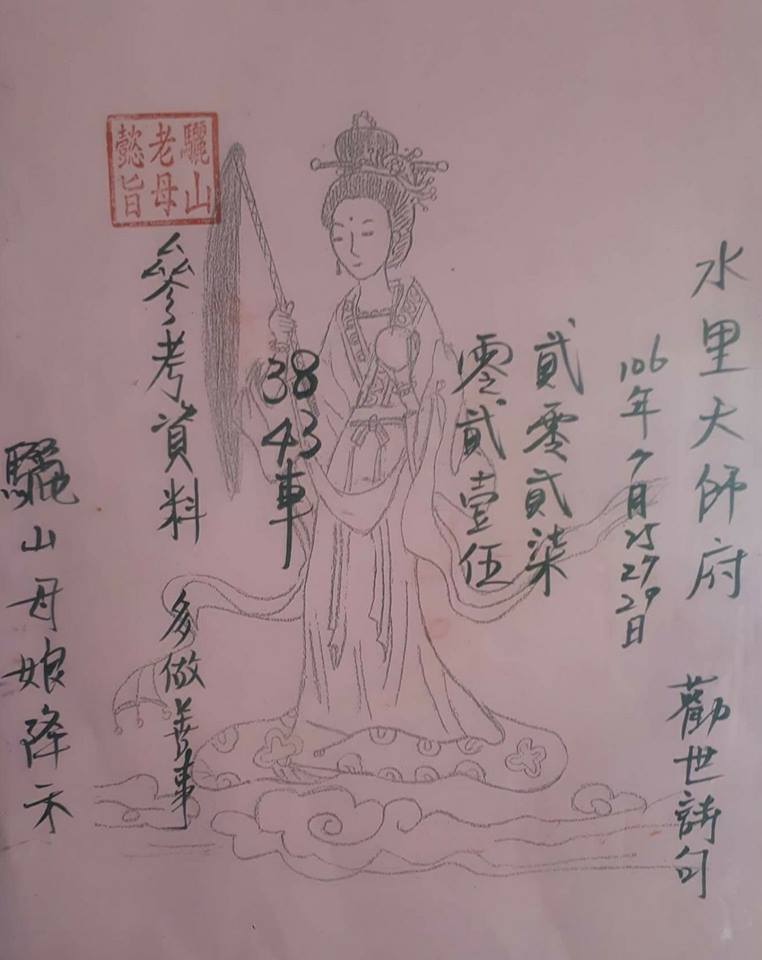 水里天師府
勸世詩句
106年7月25 27 29日
貳零貳柒
零貳壹伍
38
43車
參考資料
多做善事
驪山
老母
懿旨
驪山母娘降示